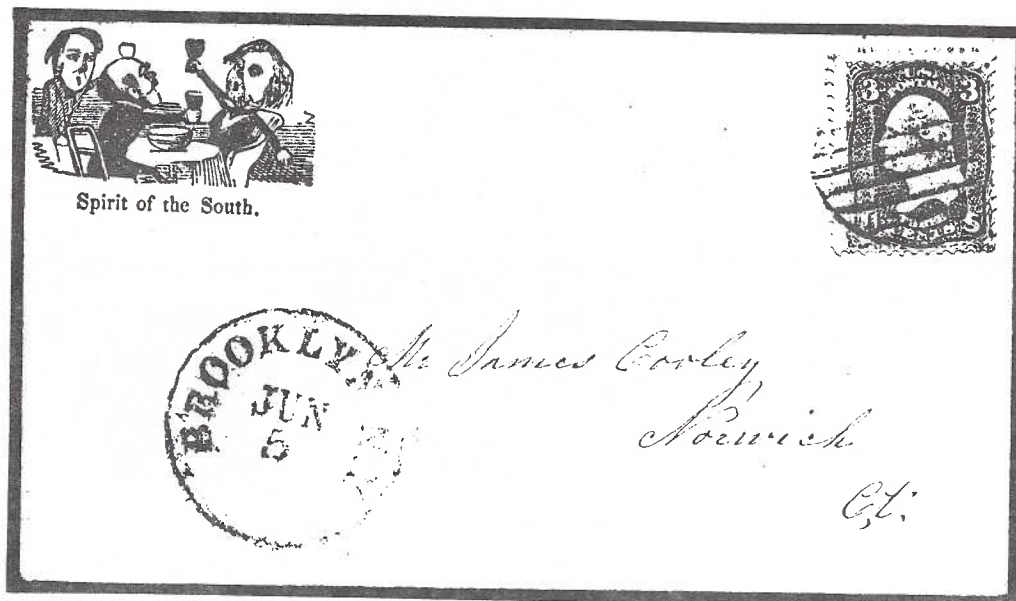 Spirit of the South.
3 3
BROOKLYN
JUN
5
Mr James Corley,
Norwich
Ct.